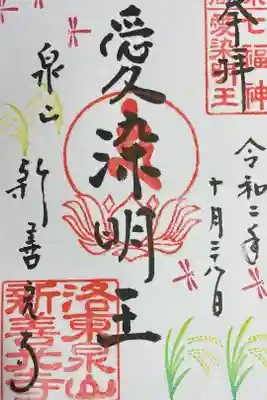 奉拝
令和二年
十月二八日
愛染明王
泉山
新善光寺
七福神
愛染明王
洛東泉山
新善光寺